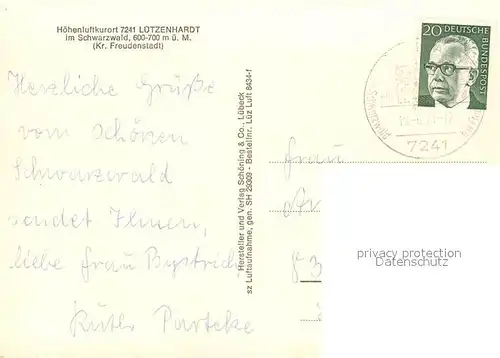 Höhenluftkurort 7241 LÜTZENHARDT
im Schwarzwald, 600-700 m ü. M.
(Kr. Freudenstadt)
20 DEUTSCHE
BUNDESPOST
7241
Herzliche Grüße
vom schönen
Schwarzwald
sendet Ihnen,
liebe Frau
Hersteller und Verlag Schöning & Co., Lübeck
sz Luftaufnahme, gen. SH 29009 - Bestellnr. Lüz Luft 8434-f
Frau
privacy protection
Datenschutz